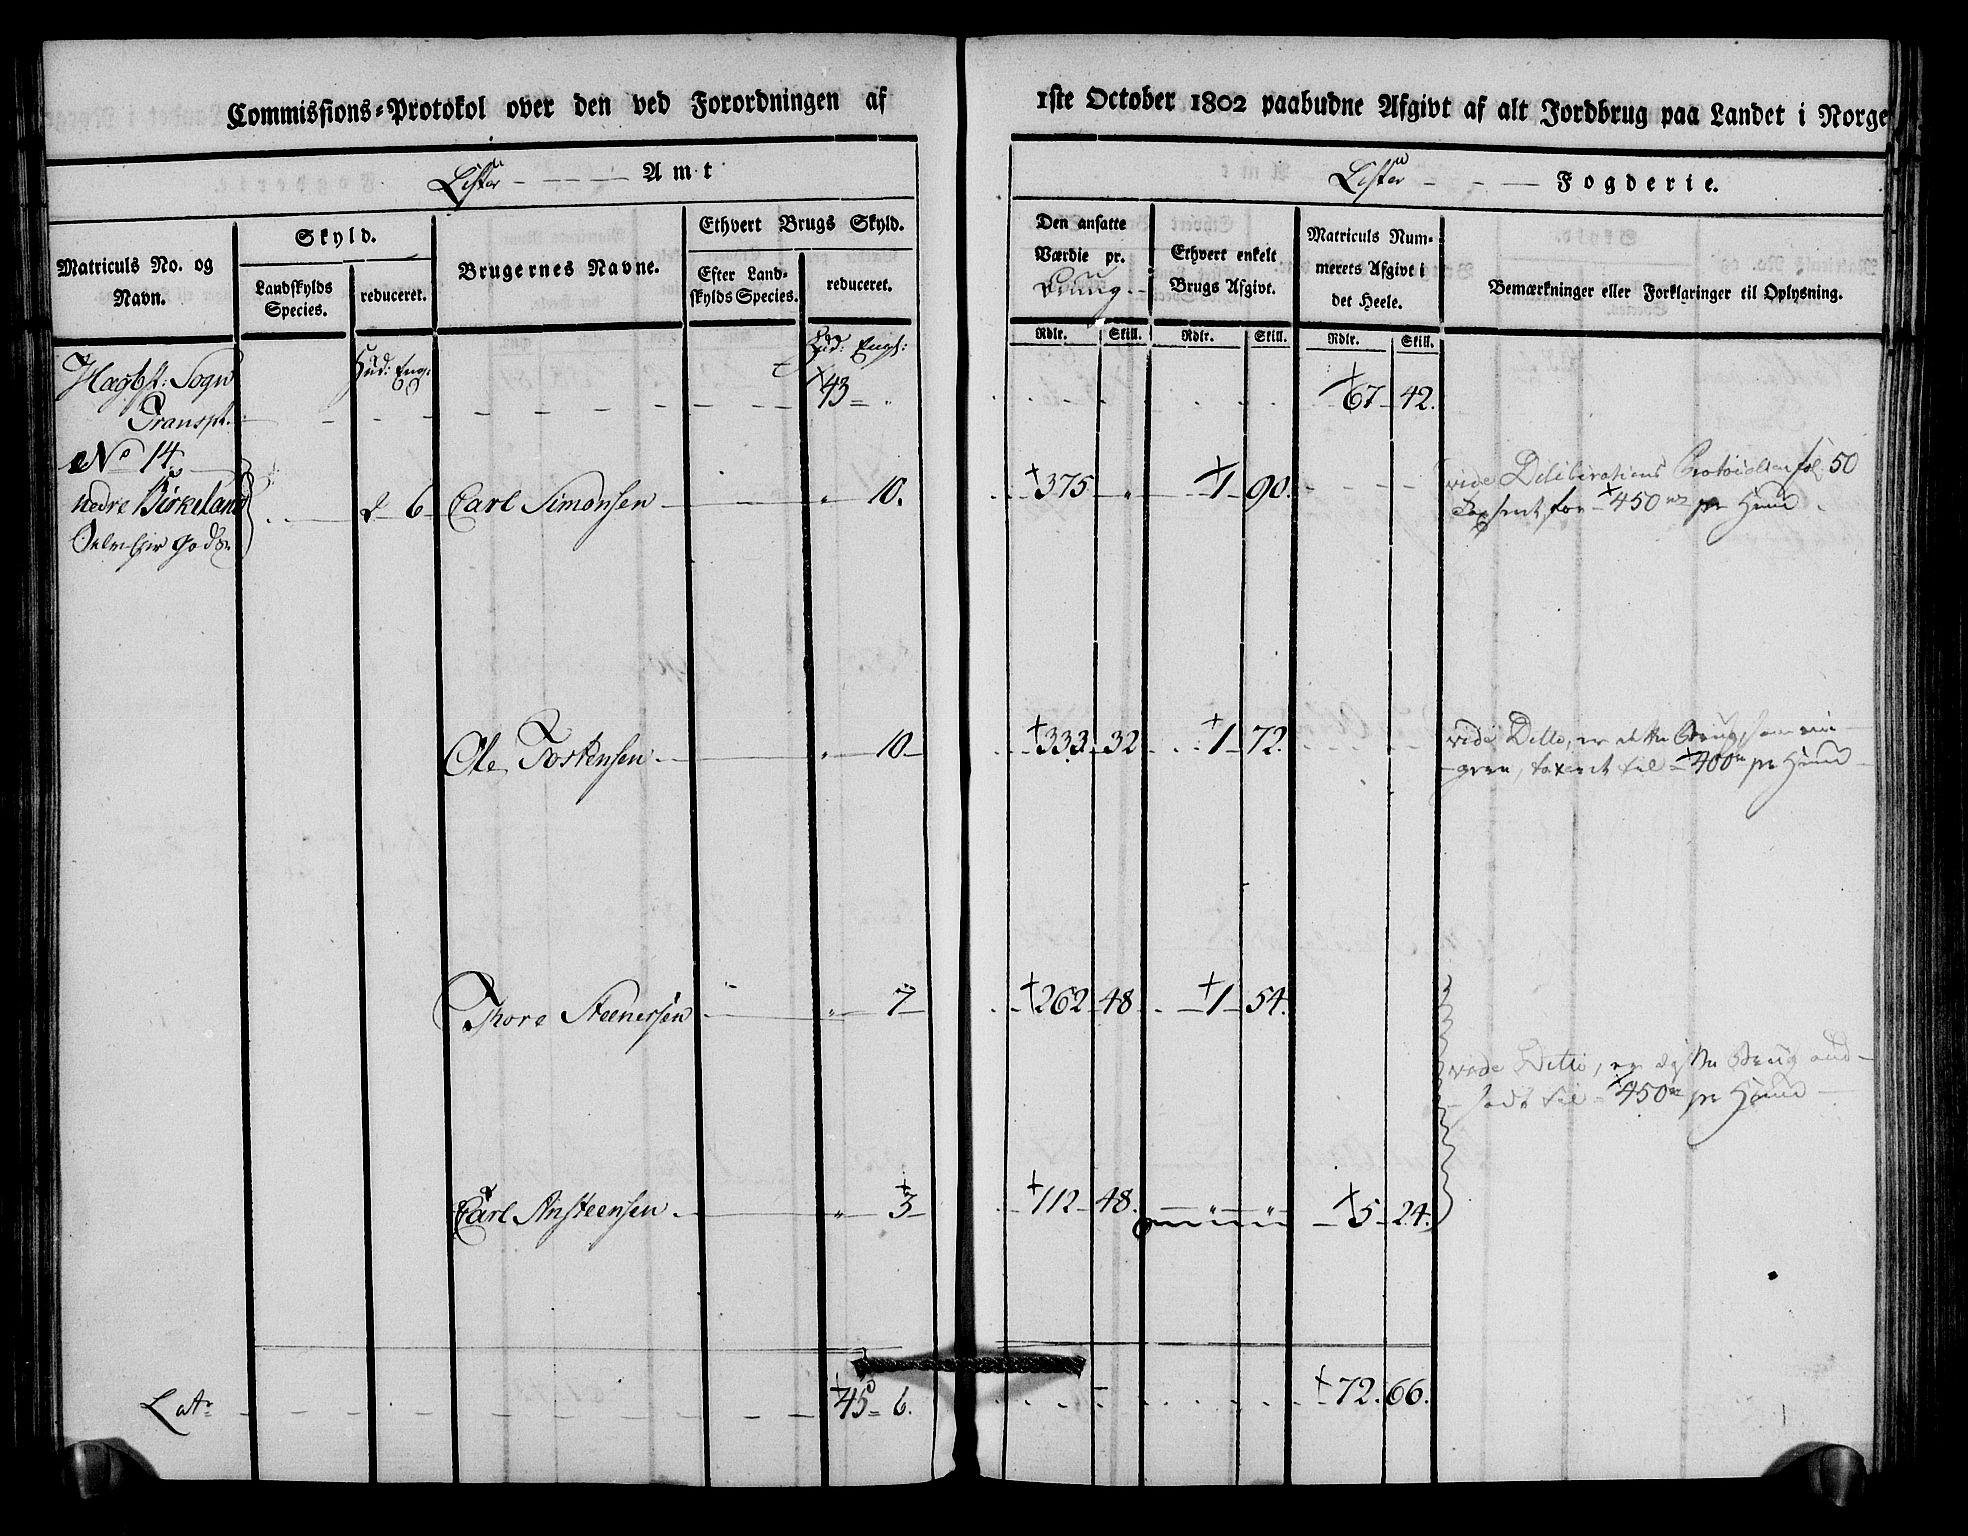 Commissions-Protokol over den ved Forordningen af 1ste October 1802 paabudne Afgivt af alt Jordbrug paa Landet i Norge
Lister Amt
Lister Fogderie.
Matriculs No. og Navn.
Skyld.
Landskylds Species.
reduceret.
Brugernes Navne.
Ethvert Brugs Skyld.
Efter Landskylds Species.
reduceret.
Den ansatte Værdie pr. Bruug
Rdlr. Skill.
Ethvert enkelt Brugs Afgivt.
Rdlr. Skill.
Matriculs Nummerets Afgivt i det Heele.
Rdlr. Skill.
Bemærkninger eller Forklaringer til Oplysning.
Hægbst: Sogn Hud: Eng: Hud: Engl:
Transpt. 43 " 67 42.
No 14
nedre Birkeland 2 6 Carl Simonsen " 10. 375 " 1 90. vide Deliberations Protocollen fol. 50
Taxeret for 450 rd pr Huud
Ole Torkensen " 10 333 32 1 72. vide Ditto, er dette Brug, som ringere, taxeret til 400 rd pr Huud
Thore Steenersen " 7 262 48 1 54.
vide Ditto, er disse Brug andsadt til 450 rd pr Huud
Carl Ansteensen " 3 112 48. " " 5 24.
Latr 45 6. 72. 66.